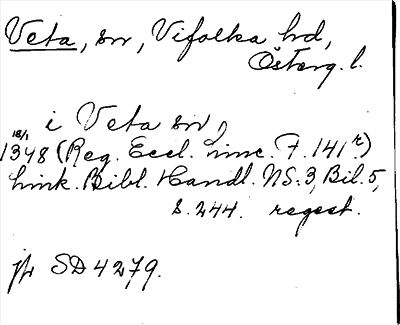 Veta, sn, Vifolka hd,
Österg. l.
i Veta sn,
18/1
1348 (Reg. Eccl. Linc. F. 141 r)
Link. Bibl. Handl. NS. 3, Bil. 5,
s. 244. regest.
jfr SD 4279.